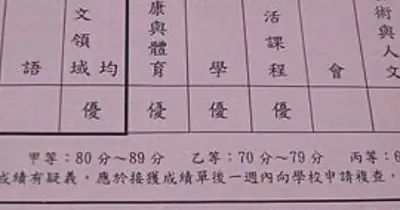 語
文領域
均
康與體育
學
活課程
會
術與人文
優 優 優 優
甲等：80 分～89 分 乙等：70 分～79 分 丙等：6
成績有疑義，應於接獲成績單後一週內向學校申請複查，